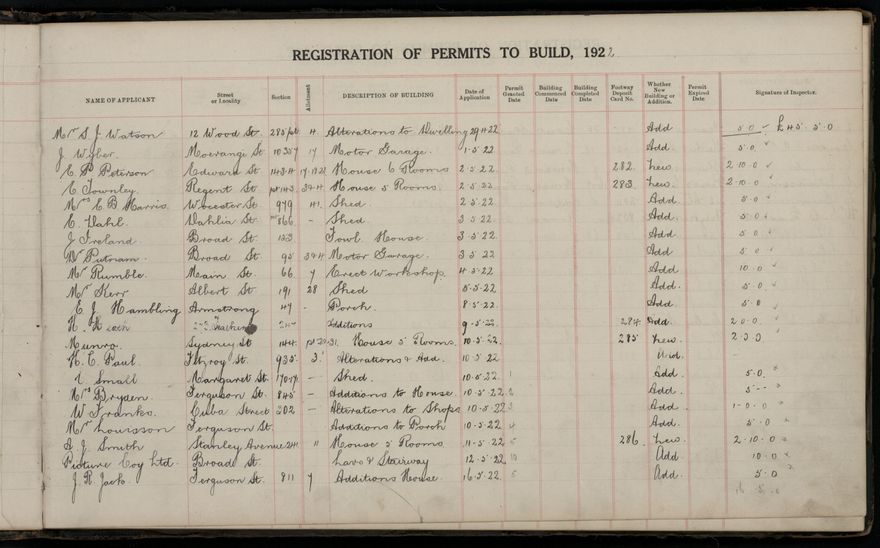 REGISTRATION OF PERMITS TO BUILD, 1922
NAME OF APPLICANT Street or Locality Section Allotment DESCRIPTION OF BUILDING Date of Application Permit Granted Date Building Commenced Date Building Completed Date Footway Deposit Card No. Whether New Building or Addition. Permit Expired Date Signature of Inspector.
Mr S J Watson 12 Wood St. 285/pt 4 Alterations to Dwelling 29.4.22 Add 5.0 £45.5.0
J. Wyber. Moerangi St 1035 17 Motor Garage. 1.5.22 Add 5.0
E P Peterson Edward St 143.4 House 6 Rooms 2.5.22 282. New 2.10.0
C Townley. Regent St. pt 143. House 5 Rooms. 2.5.22 283. New 2.10.0
Mrs C B Harris. Worcester St 979 41. Shed. 2.5.22 Add 5.0
C. Dahl. Dahlia St 866 - Shed 3.5.22 Add. 5.0
J Ireland Broad St 123 Fowl House. 3.5.22. Add 5.0
Putnam. Broad St. 95 Motor Garage. 3.5.22 Add 5.0
Mr Rumble. Main St. 66 7 Erect Workshop. 4.5.22 Add 10.0
Mr Kerr Albert St. 191 28 Shed 5.5.22 Add. 5.0
E J Hambling Armstrong 47 - Porch. 8.5.22. Add. 5.0
Additions 9.5.22. 284. Add. 2.0.0
Munro. Sydney St 144. House 5 Rooms. 10.5.22. 285 New.
H. C. Paul. Fitzroy St. 935. 3. Alterations & Add. 10.5.22 Add. -
Small Margaret St. - Shed. 10.5.22. 1 Add. 5.0.
Mrs Bryden. Ferguson St. 845 - Additions to House. 10.5.22. 2 Add. 5--
W Franks. Cuba Street 302 - Alterations to Shops 10.5.22 3 Add. 1-0-0
Mr Louisson Ferguson St. Additions to Porch 10.5.22 4 Add. 5.0
J. Smith Stanley Avenue 11 House 5 Rooms 11.5.22 5 286. New. 2-10-0
Picture Coy Ltd. Broad St. Lavs & Stairway 12.5.22 Add 10.0
J. R. Jack. Ferguson St. 811 7 Additions House. 16.5.22. Add. 5.0